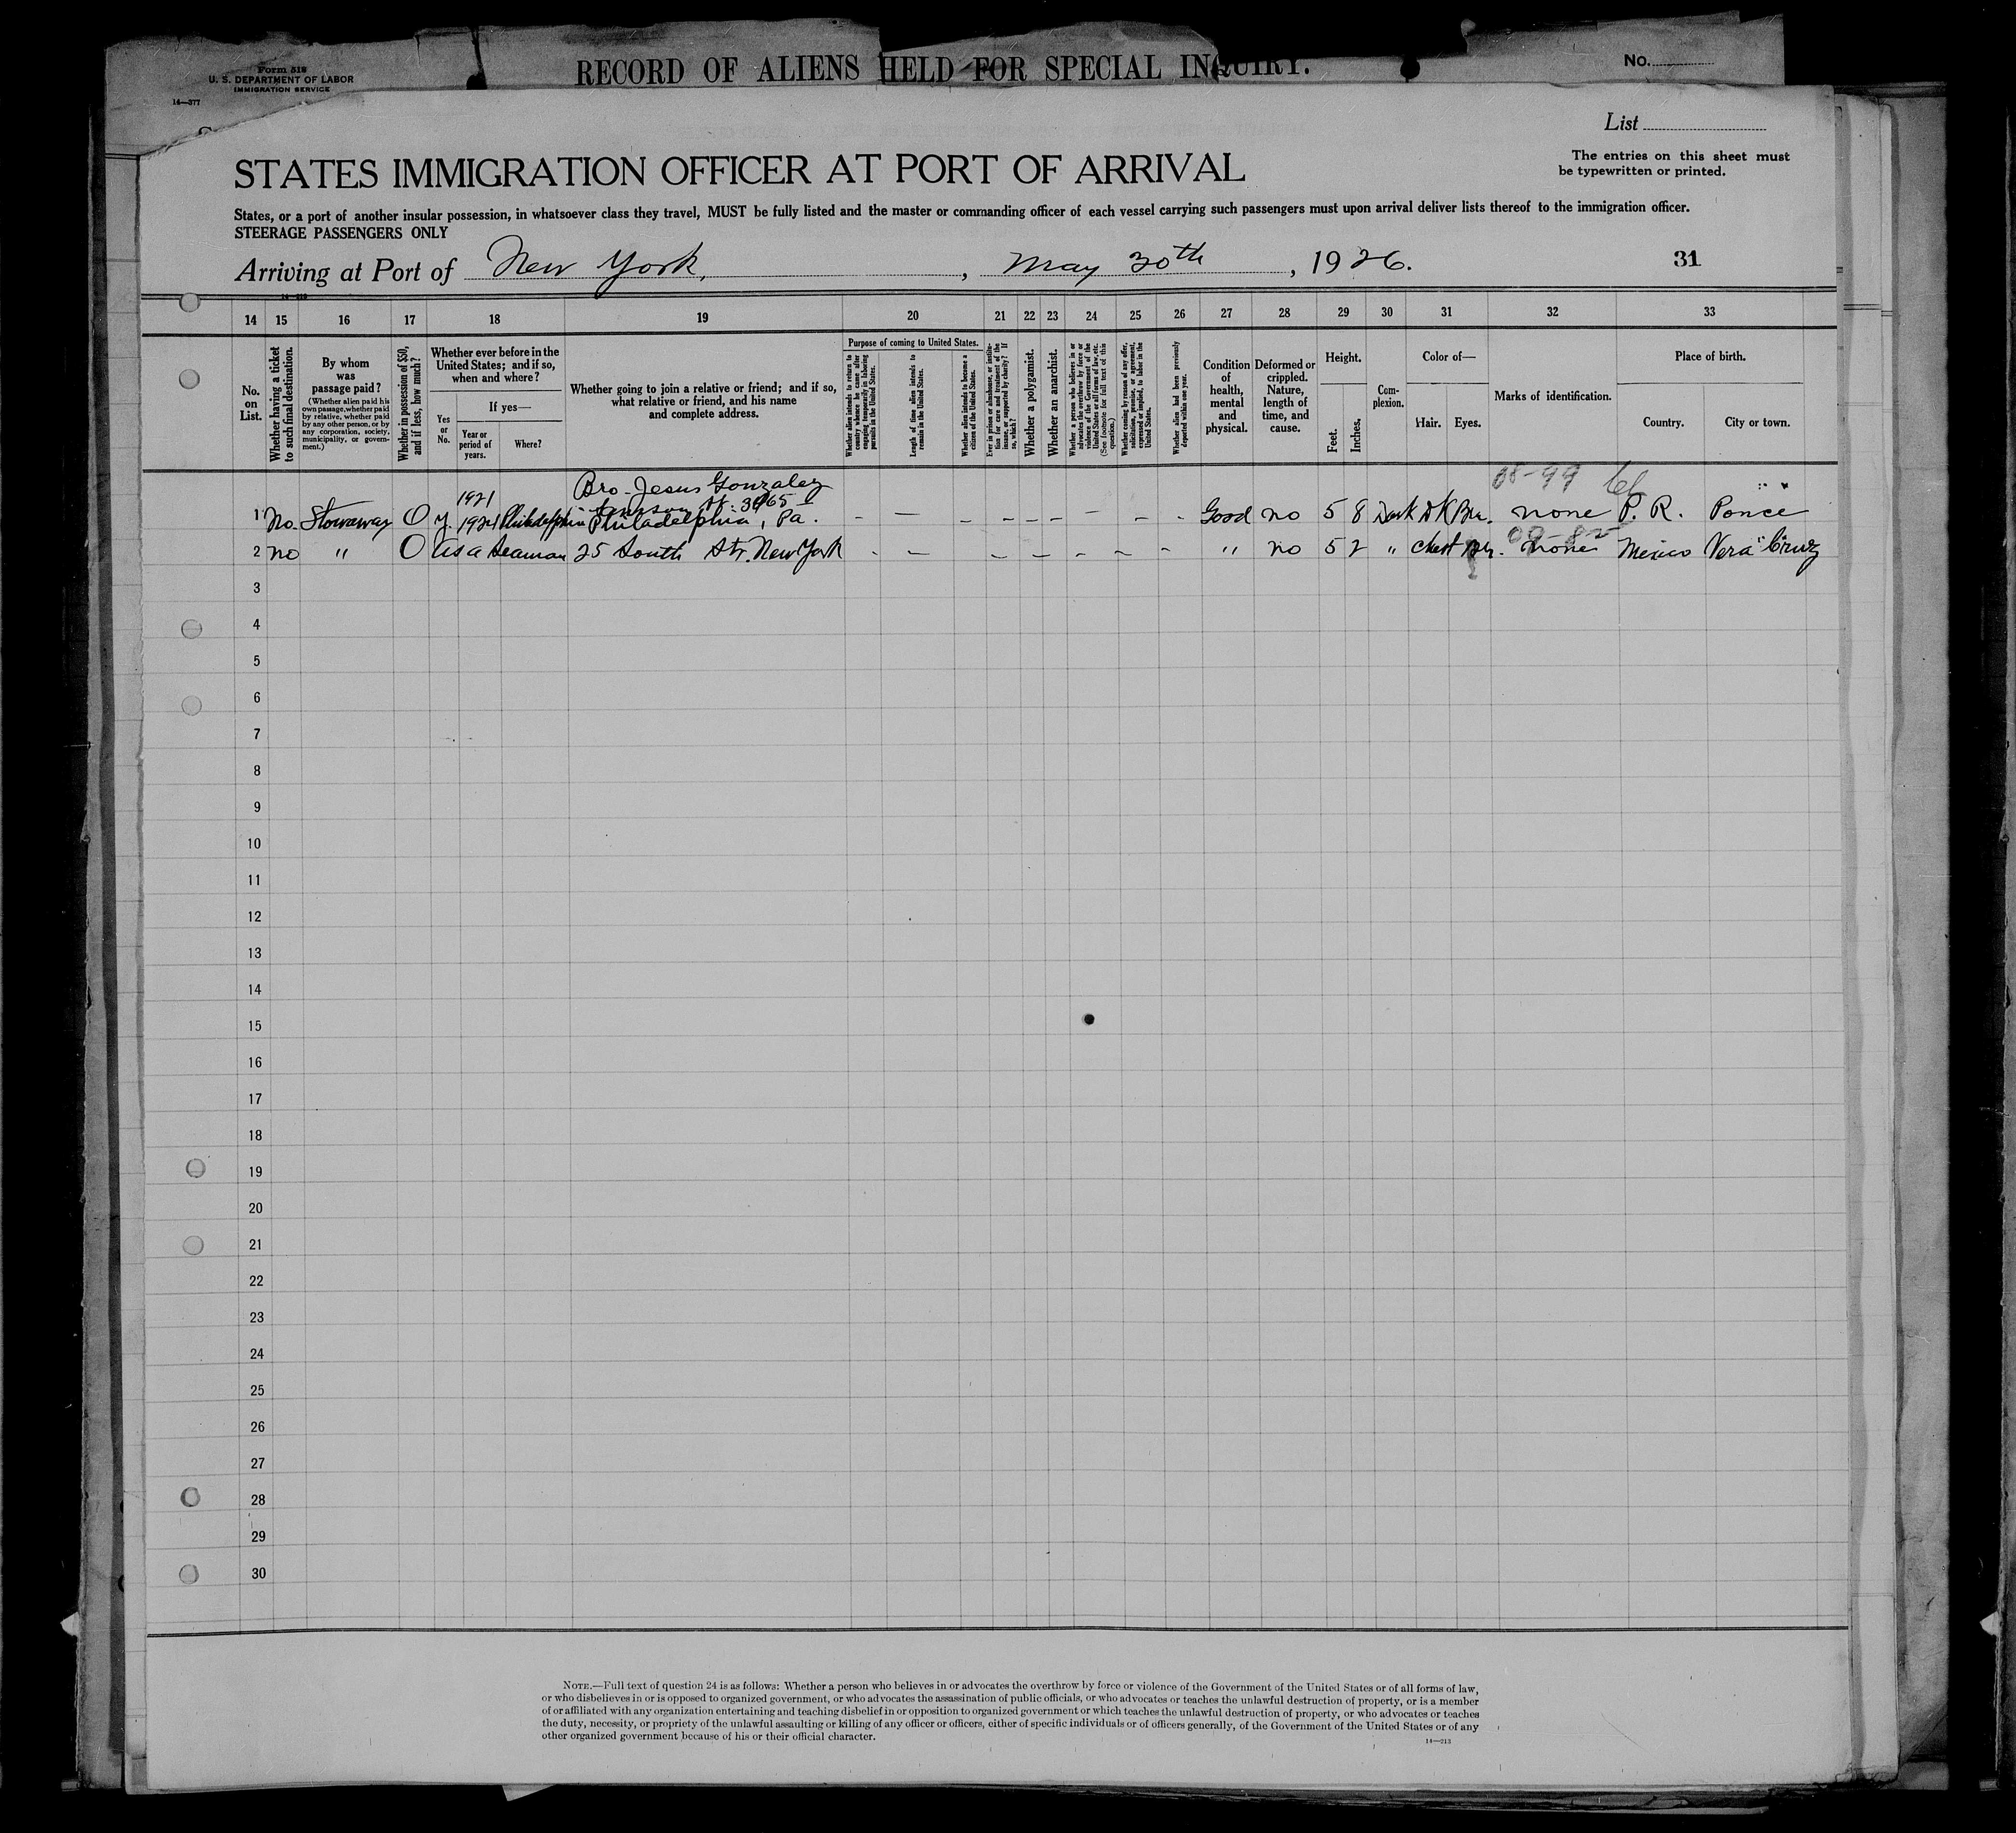 Form 519
U. S. DEPARTMENT OF LABOR
IMMIGRATION SERVICE
14—377
RECORD OF ALIENS HELD FOR SPECIAL INQUIRY.
No.
List
The entries on this sheet must
be typewritten or printed.
STATES IMMIGRATION OFFICER AT PORT OF ARRIVAL
States, or a port of another insular possession, in whatsoever class they travel, MUST be fully listed and the master or commanding officer of each vessel carrying such passengers must upon arrival deliver lists thereof to the immigration officer.
STEERAGE PASSENGERS ONLY
Arriving at Port of New York, , May 30th , 1926.
31
14 15 16 17 18 19 20 21 22 23 24 25 26 27 28 29 30 31 32 33
No. on List.
Whether having a ticket to such final destination.
By whom was passage paid?
(Whether alien paid his own passage, whether paid by relative, whether paid by any other person, or by any corporation, society, municipality, or government.)
Whether in possession of $50, and if less, how much?
Whether ever before in the United States; and if so, when and where?
Yes or No.
If yes—
Year or period of years.
Where?
Whether going to join a relative or friend; and if so, what relative or friend, and his name and complete address.
Purpose of coming to United States.
Whether alien intends to return to country whence he came after engaging temporarily in laboring pursuits in the United States.
Length of time alien intends to remain in the United States.
Whether alien intends to become a citizen of the United States.
Ever in prison or almshouse, or institution for care and treatment of the insane, or supported by charity? If so, which?
Whether a polygamist.
Whether an anarchist.
Whether a person who believes in or advocates the overthrow by force or violence of the Government of the United States or all forms of law, etc. (See footnote for full text of this question.)
Whether coming by reason of any offer, solicitation, promise, or agreement, expressed or implied, to labor in the United States.
Whether alien had been previously deported within one year.
Condition of health, mental and physical.
Deformed or crippled. Nature, length of time, and cause.
Height.
Feet.
Inches.
Complexion.
Color of—
Hair.
Eyes.
Marks of identification.
Place of birth.
Country.
City or town.
08-99
Bro-Jesus Gonzalez
1921
St. 3465
1 No. Stowaway 0 y. 1924 Philadelphia Philadelphia, Pa. – – – – – – – – – Good no 5 8 Dark Dk Br. none P. R. Ponce
2 no " 0 As a Seaman 25 South Str. New York - – – – – – – – – " no 5 2 " Chest Br. none Mexico Vera Cruz
3
4
5
6
7
8
9
10
11
12
13
14
15
16
17
18
19
20
21
22
23
24
25
26
27
28
29
30
NOTE.—Full text of question 24 is as follows: Whether a person who believes in or advocates the overthrow by force or violence of the Government of the United States or of all forms of law,
or who disbelieves in or is opposed to organized government, or who advocates the assassination of public officials, or who advocates or teaches the unlawful destruction of property, or is a member
of or affiliated with any organization entertaining and teaching disbelief in or opposition to organized government or which teaches the unlawful destruction of property, or who advocates or teaches
the duty, necessity, or propriety of the unlawful assaulting or killing of any officer or officers, either of specific individuals or of officers generally, of the Government of the United States or of any
other organized government because of his or their official character.
14—213